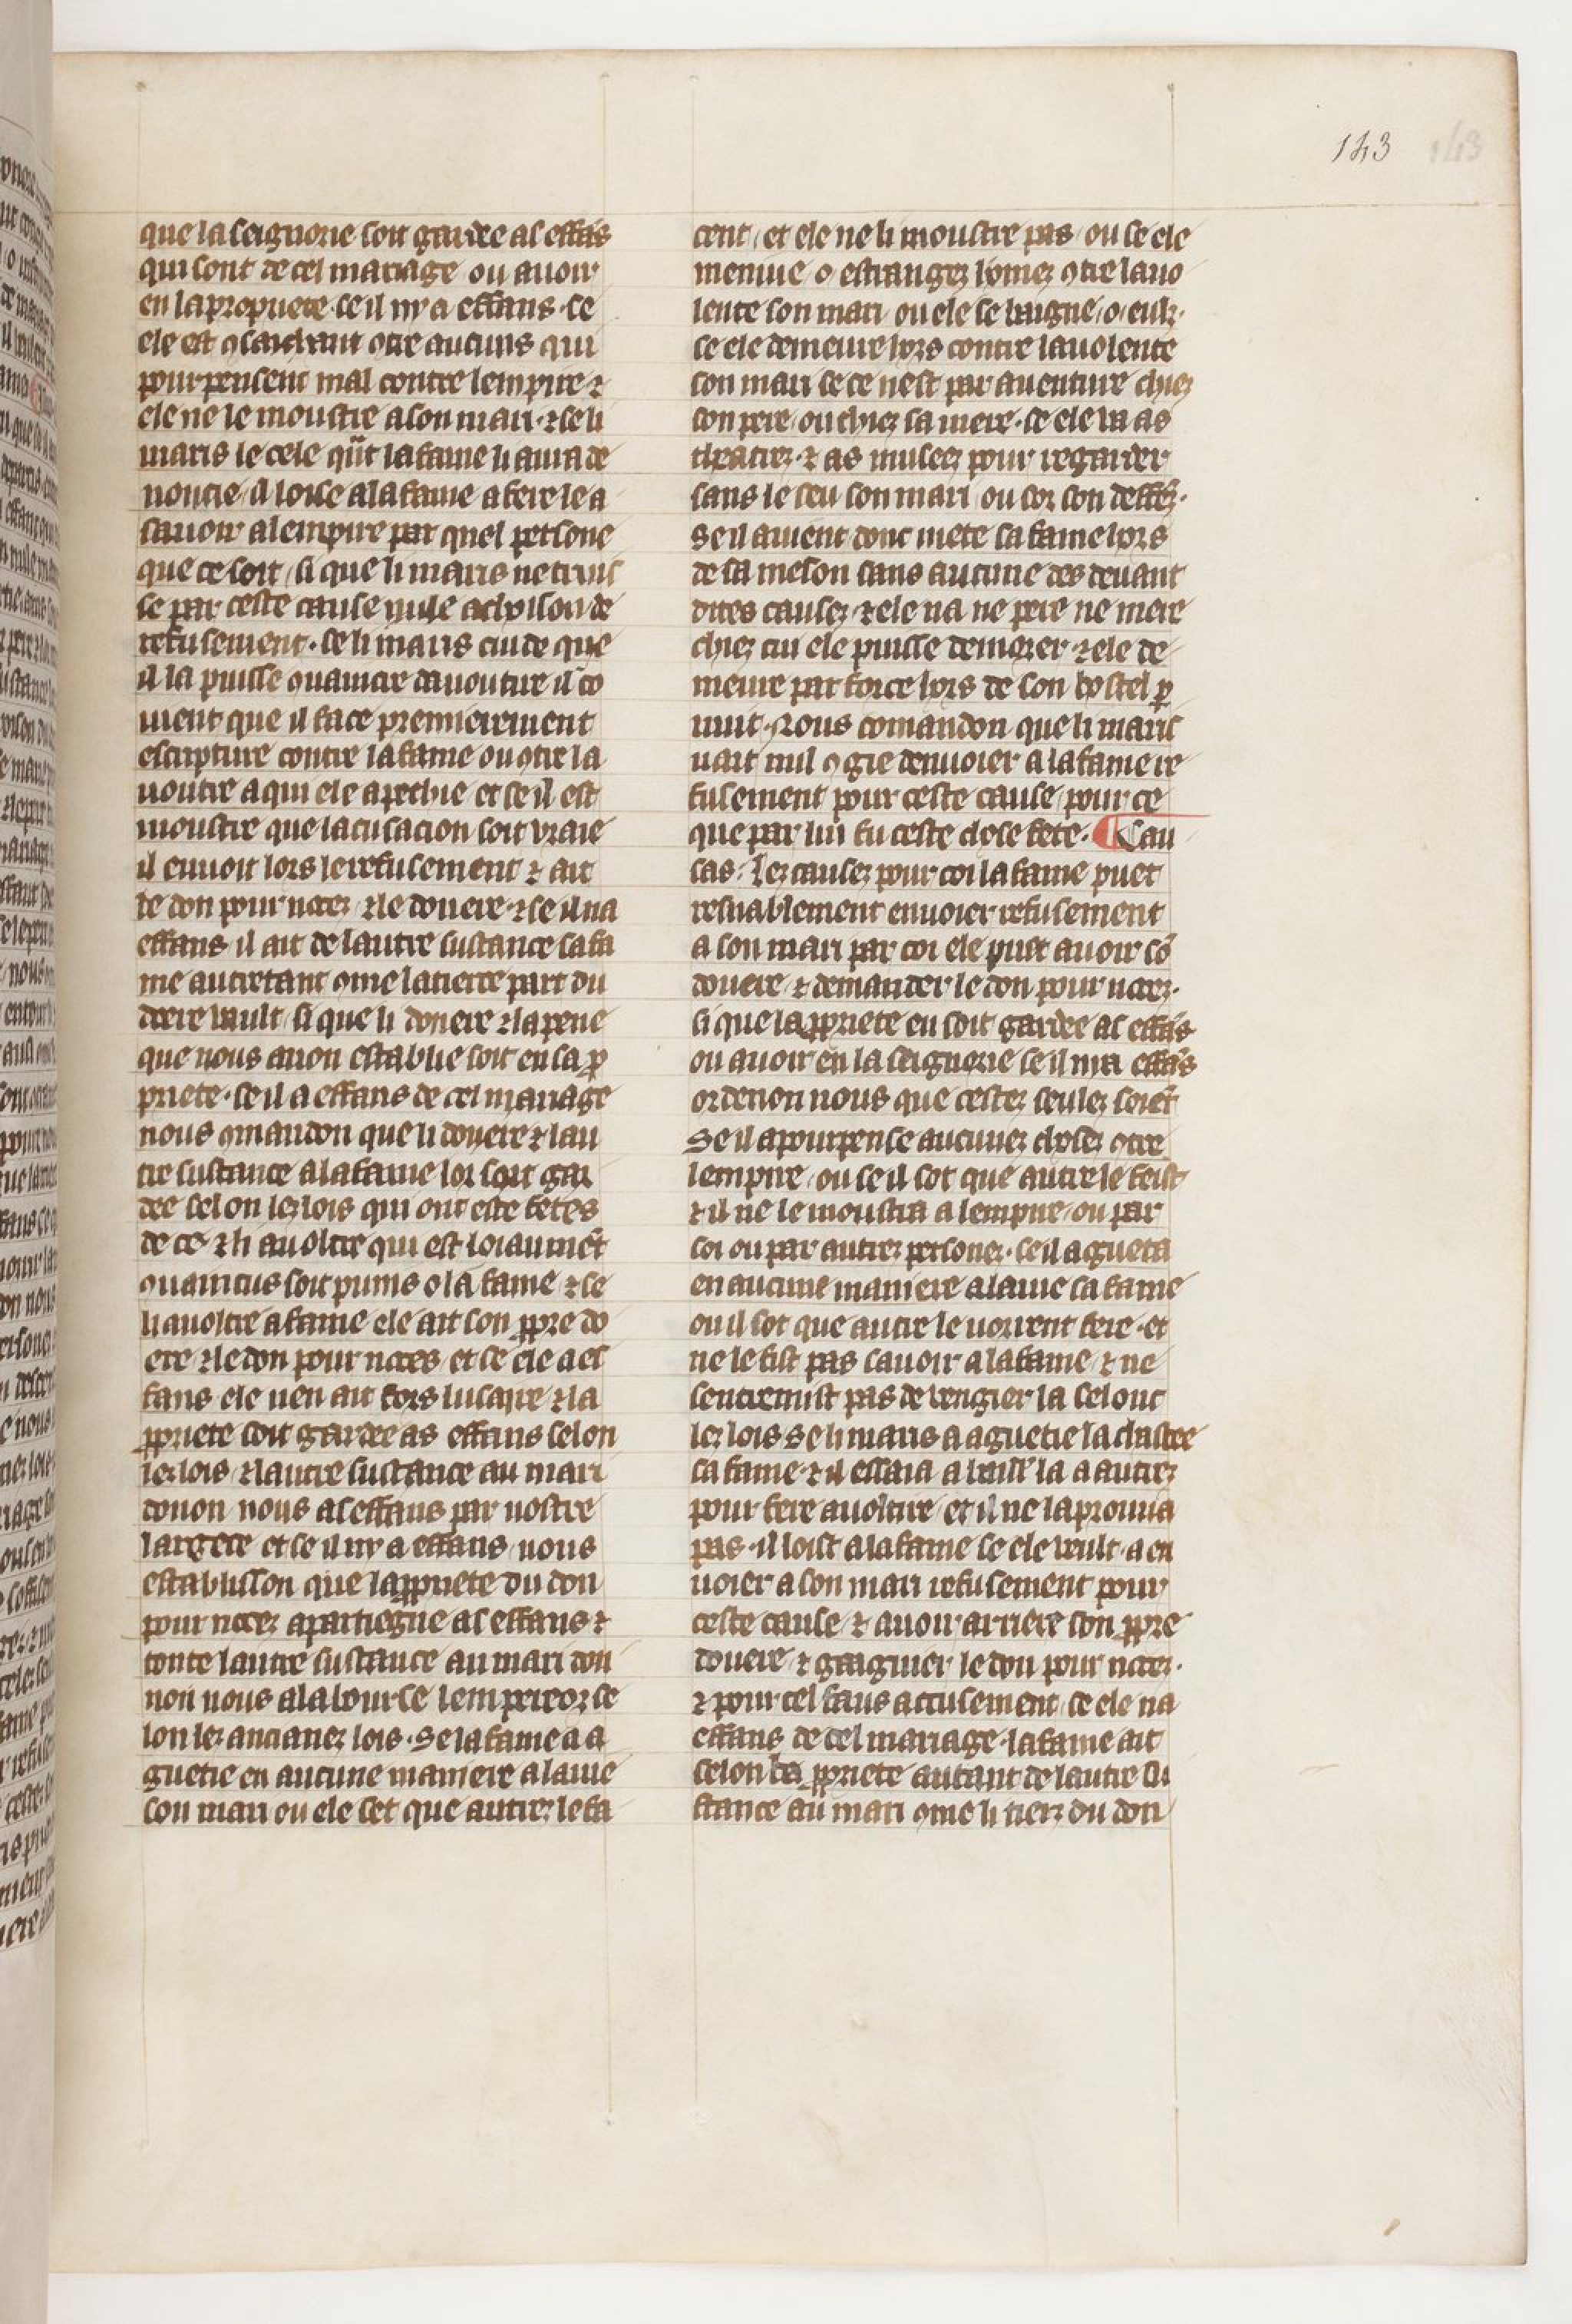 143 143
que la seignorie soit gardee as effãs
qui sont de cel mariage ou auoir
en la propriete · se il ny a effans · se
ele est ꝯsachant ꝯtre aucuns qui
pourpensent mal contre lempire ⁊
ele ne le moustre a son mari · ⁊ se li
maris le cele quãt la fame li aura de
noncie / il loise a la fame a fere le a
sauoir a lempire par quel persone
que ce soit / si que li maris ne truis
se par ceste cause nule achoison de
refusement · se li maris cuide que
il la puisse ꝯuaincre dauoutire il co
uient que il face premierement
escripture contre la fame ou ꝯtre la
uoutre a qui ele apechie et se il est
moustre que lacusacion soit vraie
il enuoit lors le refusement ⁊ ait
le don pour noces ⁊ le douere · ⁊ se il na
effans il ait de lautre sustance sa fa
me autretant ꝯme la tierce part du
doere vault / si que li douere ⁊ la pene
que nous auon establie soit en sa ꝓ
priete · se il a effans de cel mariage
nous ꝯmandon que li douere ⁊ lau
tre sustance a la fame lor soit gar
dee selon lez lois qui ont este fetes
de ce · ⁊ li auoltre qui est loiaumẽt
ꝯuaincus soit punis o la fame · ⁊ se
li auoltre a fame ele ait son ꝓpre do
ere ⁊ le don pour noces et se ele a ef
fans ele nen ait fors lusage ⁊ la
ꝓpriete soit gardee as effans selon
lez lois ⁊ lautre sustance au mari
donon nous as effans par nostre
largece et se il ny a effans / nous
establisson que la ꝓpriete du don
pour noces apartiegne as effans ⁊
toute lautre sustance au mari don
non nous a la bourse lempereor se
lon lez ancianez lois · Se la fame a a
guetie en aucune maniere a la uie
son mari ou ele set que autrez le fa
cent / et ele ne li moustre pas / ou se ele
meniue o estrangez homez ꝯtre la uo
lente son mari ou ele se baigne / o / eulz ·
se ele demeure hors contre la uolente
son mari se ce nest par auenture chiez
son pere / ou chiez sa mere · se ele va as
theatrez · ⁊ as musees pour regarder
sans le seu son mari ou sor son deffẽs ·
Se il auient donc mete sa fame hors
de sa meson sans aucune des deuant
dites causez / ⁊ ele na ne pere ne mere
chiez cui ele puisse demorer · ⁊ ele de
meure par force hors de son hostel ꝑ
nuit · Nous comandon que li maris
nait nul ꝯgie denuoier a la fame re
fusement pour ceste cause / pour ce
que par lui fu ceste chose fete · ¶ Cau
sas · Lez causez pour coi la fame puet
resnablement enuoier refusement
a son mari par coi ele puist auoir sõ
douere / ⁊ demander le don pour nocez ·
si que la ꝓpriete en soit gardee as effãs
ou auoir en la seignorie se il nia effãs
ordenon nous que cestez seulez soiẽt
Se il a pourpense aucunez chosez ꝯtre
lempire / ou se il sot que autre le feist
⁊ il ne le moustra a lempire / ou par
soi ou par autrez personez · se il a gueta
en aucune maniere a la uie sa fame
ou il sot que autre le uorrent fere · et
ne le fist pas sauoir a la fame / ⁊ ne
sentremist pas de vengier la selonc
lez lois Se li maris a aguetie la chastee
sa fame · ⁊ il essaia a baill' la a autrez
pour fere auoltire / et il ne la prouua
pas · il loist a la fame se ele veult · a en
uoier a son mari refusement pour
ceste cause / ⁊ auoir arriere son ꝓpre
douere / ⁊ gaagnier le don pour nocez ·
⁊ pour cel faus accusement / se ele na
effans de cel mariage · la fame ait
selon la ꝓpriete autant de lautre su
stance au mari ꝯme li tierz du don